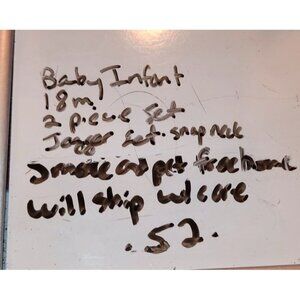 Baby Infant
18 m.
2 piece set
Jogger set. snap neck
Smoke and pet free home
will ship w/ care
.52.